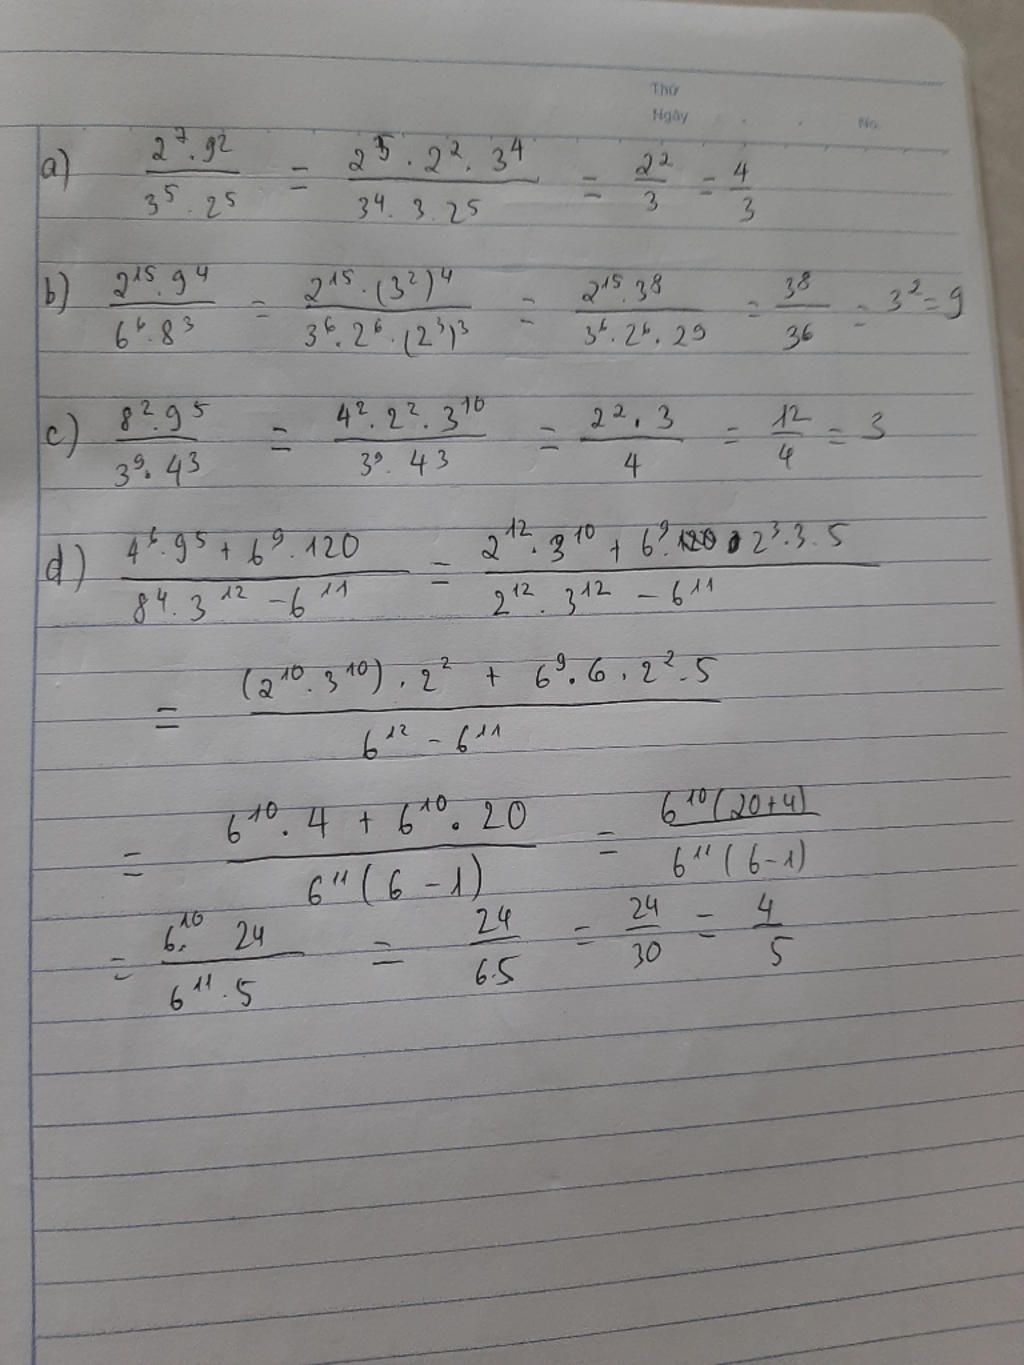 Thứ
Ngày . . No.
a) \frac{2^7 . 9^2}{3^5 . 2^5} = \frac{2^5 . 2^2 . 3^4}{3^4 . 3 . 2^5} = \frac{2^2}{3} = \frac{4}{3}
b) \frac{2^{15} . 9^4}{6^6 . 8^3} = \frac{2^{15} . (3^2)^4}{3^6 . 2^6 . (2^3)^3} = \frac{2^{15} . 3^8}{3^6 . 2^6 . 2^9} = \frac{3^8}{3^6} = 3^2 = 9
c) \frac{8^2 . 9^5}{3^9 . 4^3} = \frac{4^2 . 2^2 . 3^{10}}{3^9 . 4^3} = \frac{2^2 . 3}{4} = \frac{12}{4} = 3
d) \frac{4^6 . 9^5 + 6^9 . 120}{8^4 . 3^{12} - 6^{11}} = \frac{2^{12} . 3^{10} + 6^9 . 2^3 . 3 . 5}{2^{12} . 3^{12} - 6^{11}}
= \frac{(2^{10} . 3^{10}) . 2^2 + 6^9 . 6 . 2^2 . 5}{6^{12} - 6^{11}}
= \frac{6^{10} . 4 + 6^{10} . 20}{6^{11} (6 - 1)} = \frac{6^{10} (20 + 4)}{6^{11} (6 - 1)}
= \frac{6^{10} . 24}{6^{11} . 5} = \frac{24}{6.5} = \frac{24}{30} = \frac{4}{5}